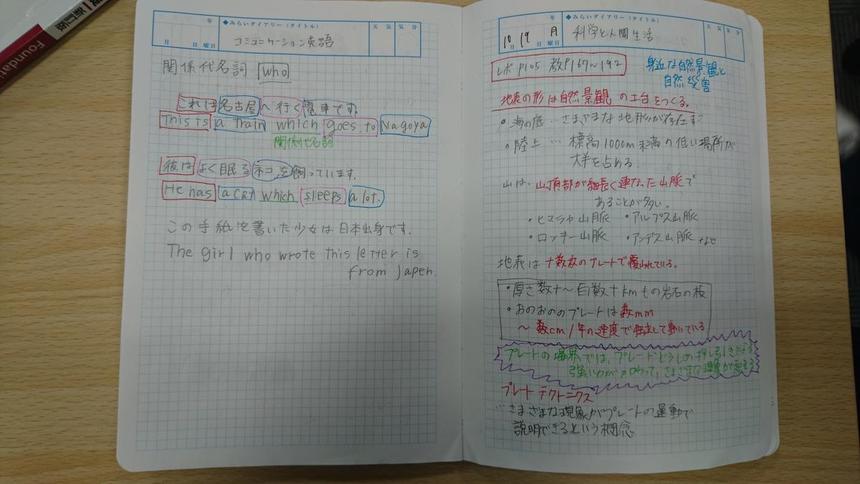 Foundat
年
◆みらいダイアリー(タイトル)
天気
気分
月 日 曜日
コミュニケーション英語
関係代名詞 who
これは名古屋へ行く電車です。
This is a train which goes to Nagoya
関係代名詞
彼はよく眠るネコを飼っています。
He has a cat which sleeps a lot.
この手紙を書いた少女は日本出身です。
The girl who wrote this letter is
from Japan.
年
◆みらいダイアリー(タイトル)
天気
気分
10月19日 月曜日
科学と人間生活
レポ P105 教P167~192
身近な自然景観と
自然災害
地表の形は自然景観の土台をつくる。
・海の底…さまざまな地形が存在する
・陸上…標高1000m未満の低い場所が
大半を占める
山は、山頂部が細長く連なった山脈で
あることが多い。
・ヒマラヤ山脈 ・アルプス山脈
・ロッキー山脈 ・アンデス山脈 など
地表は十数枚のプレートで覆われている。
・厚さ数十~百数十kmもの岩石の板
・おのおののプレートは数mm
~数cm/年の速度で動いている
プレートの境界では、プレートどうしの押し引きによる
強い力が
プレートテクトニクス
…さまざまな現象がプレートの運動で
説明できるという概念